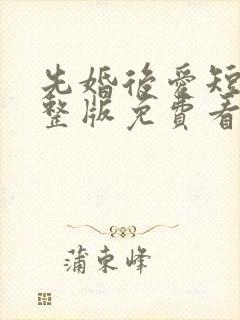 先婚後愛短
整版免費看
蒲東峰